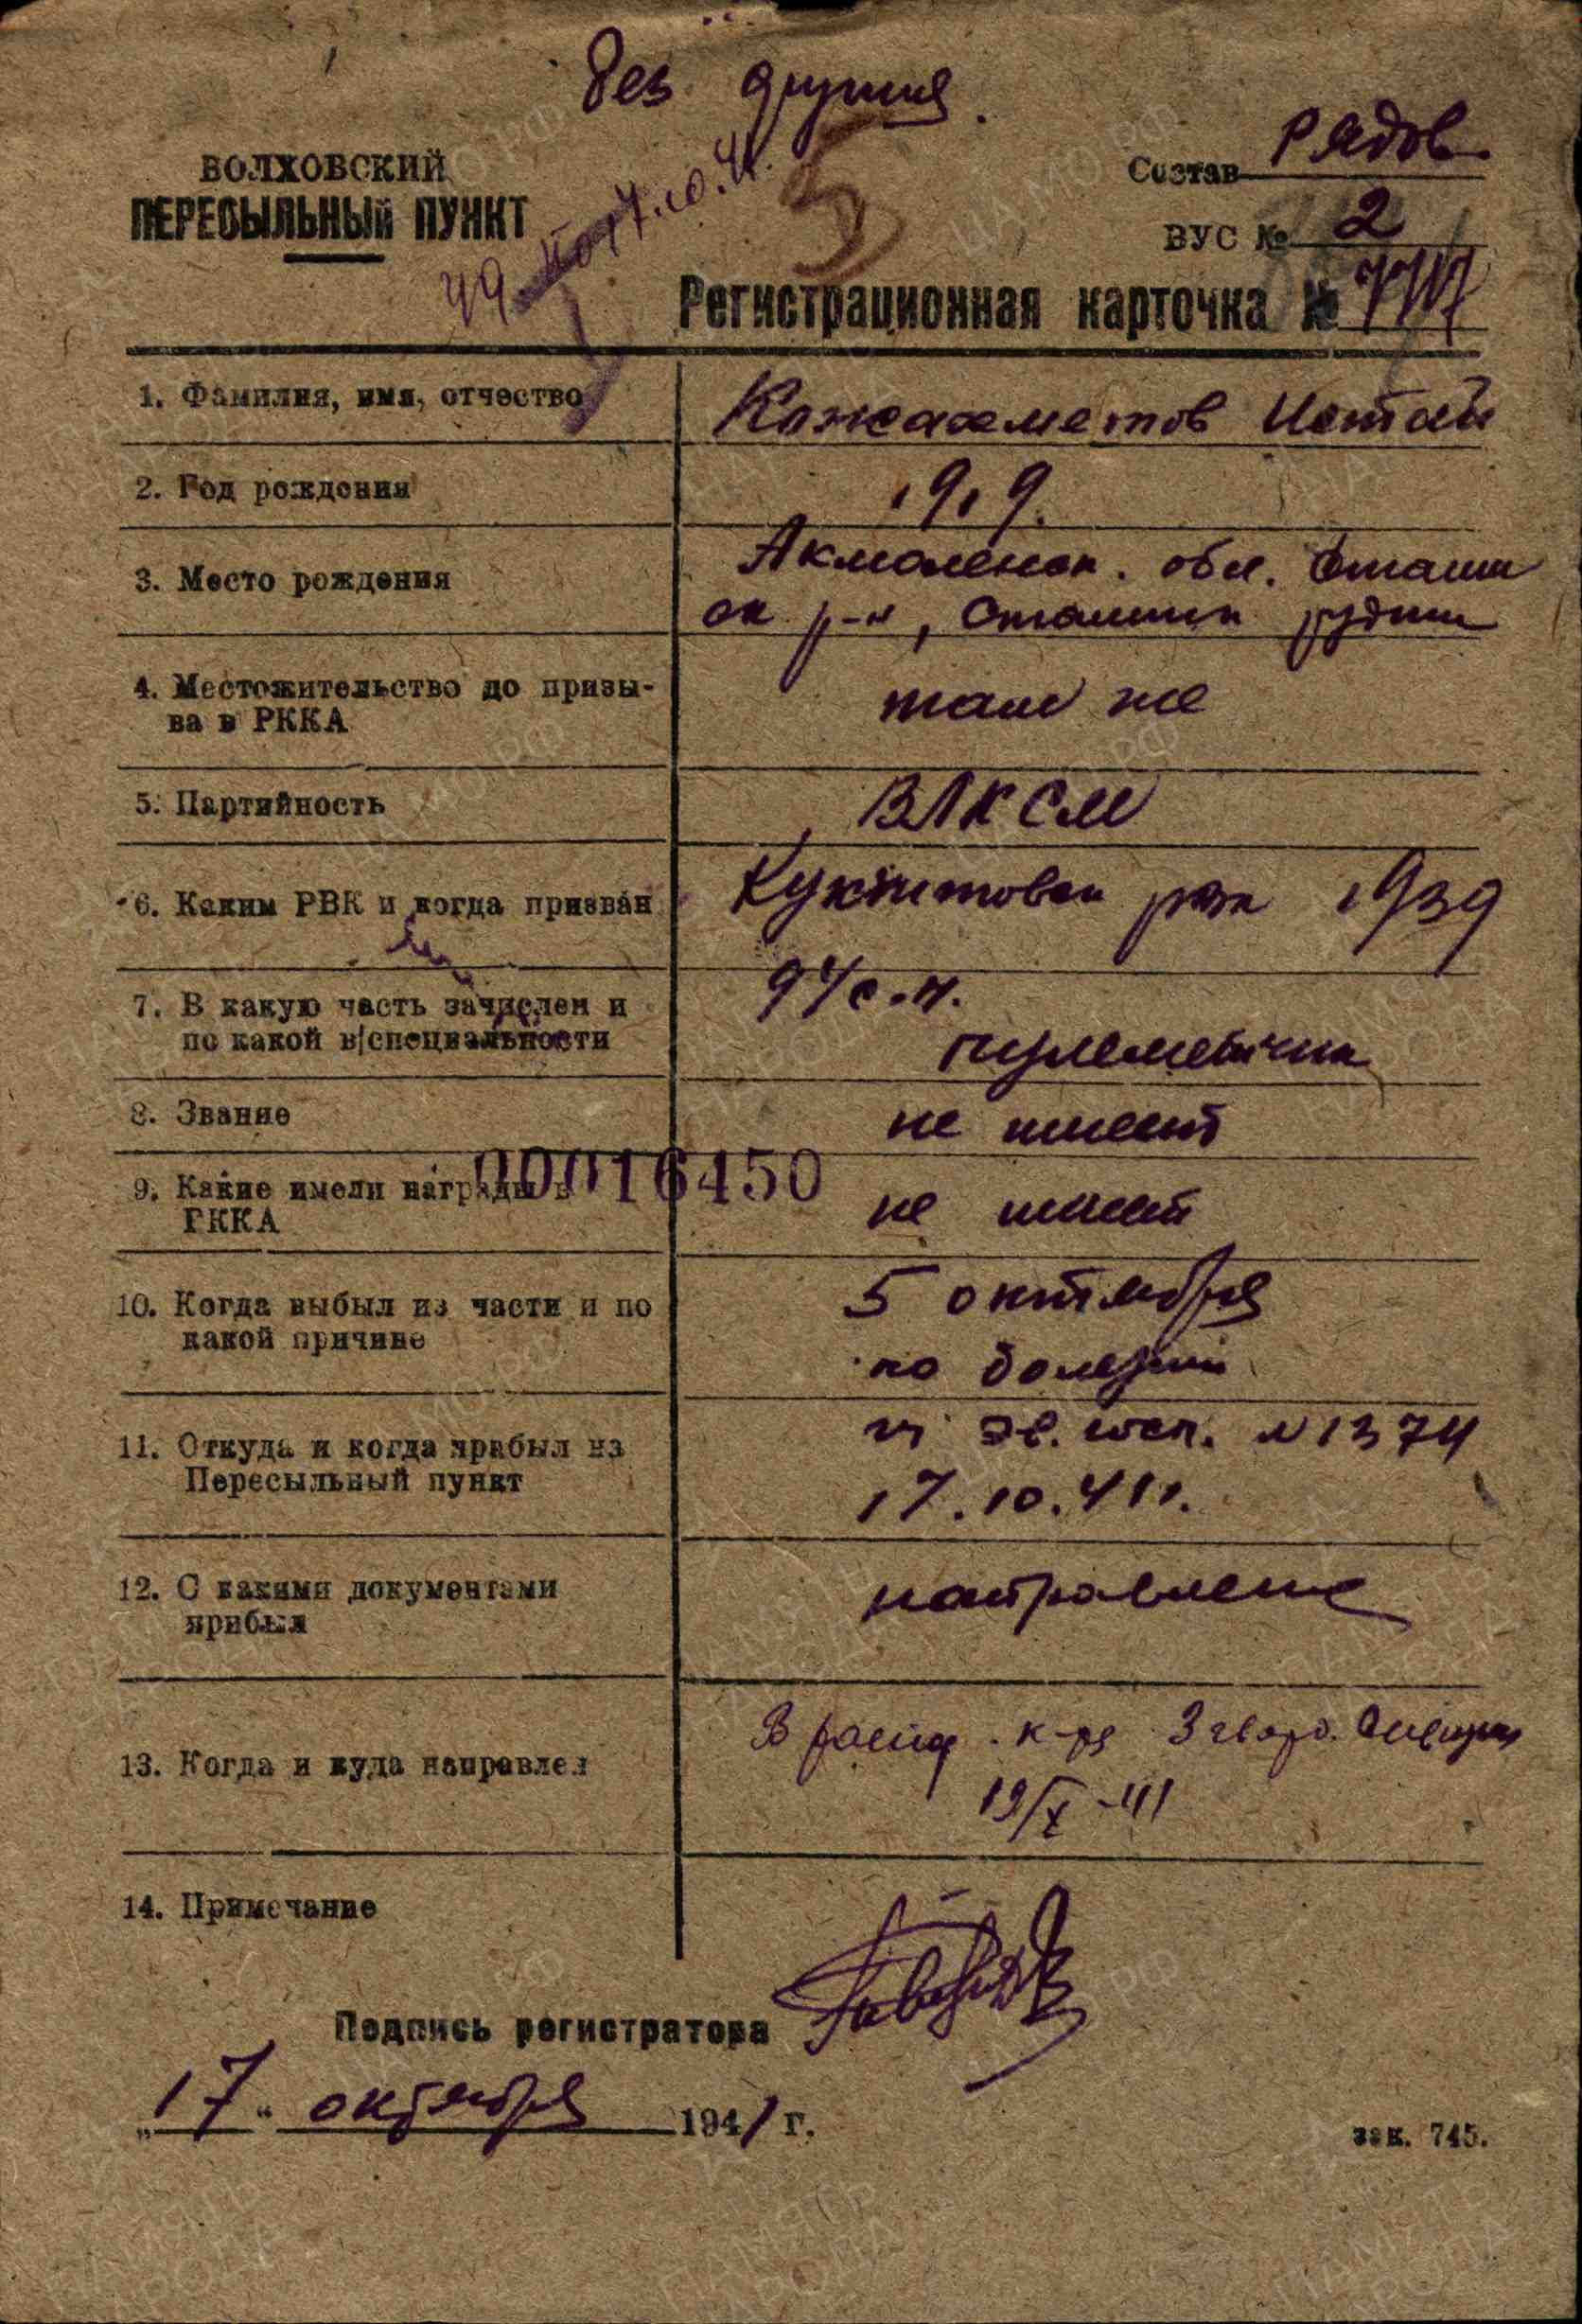 Без
Состав Рядов.
ВОЛХОВСКИЙ
ПЕРЕСЫЛЬНЫЙ ПУНКТ
5
ВУС № 2
17.10.41.
Регистрационная карточка №
1. Фамилия, имя, отчество
Кожахметов
2. Год рождения
1919.
3. Место рождения
обл. Сталин
ск р-н, Сталинск рудник
4. Местожительство до призы-
ва в РККА
там же
5. Партийность
ВЛКСМ
6. Каким РВК и когда призван
рвк 1939
7. В какую часть зачислен и
по какой в/специальности
94 с.п.
пулеметчик
8. Звание
не имеет
00016450
9. Какие имели награды в
РККА
не имеет
10. Когда выбыл из части и по
какой причине
5 октября
по болезни
11. Откуда и когда прибыл на
Пересыльный пункт
эв. госп. №1374
17.10.41г.
12. С какими документами
прибыл
направление
13. Когда и куда направлен
В расп. к-ра 3 гвард.
19/X-41
14. Примечание
Подпись регистратора
„17“ октября 1941 г.
зак. 745.